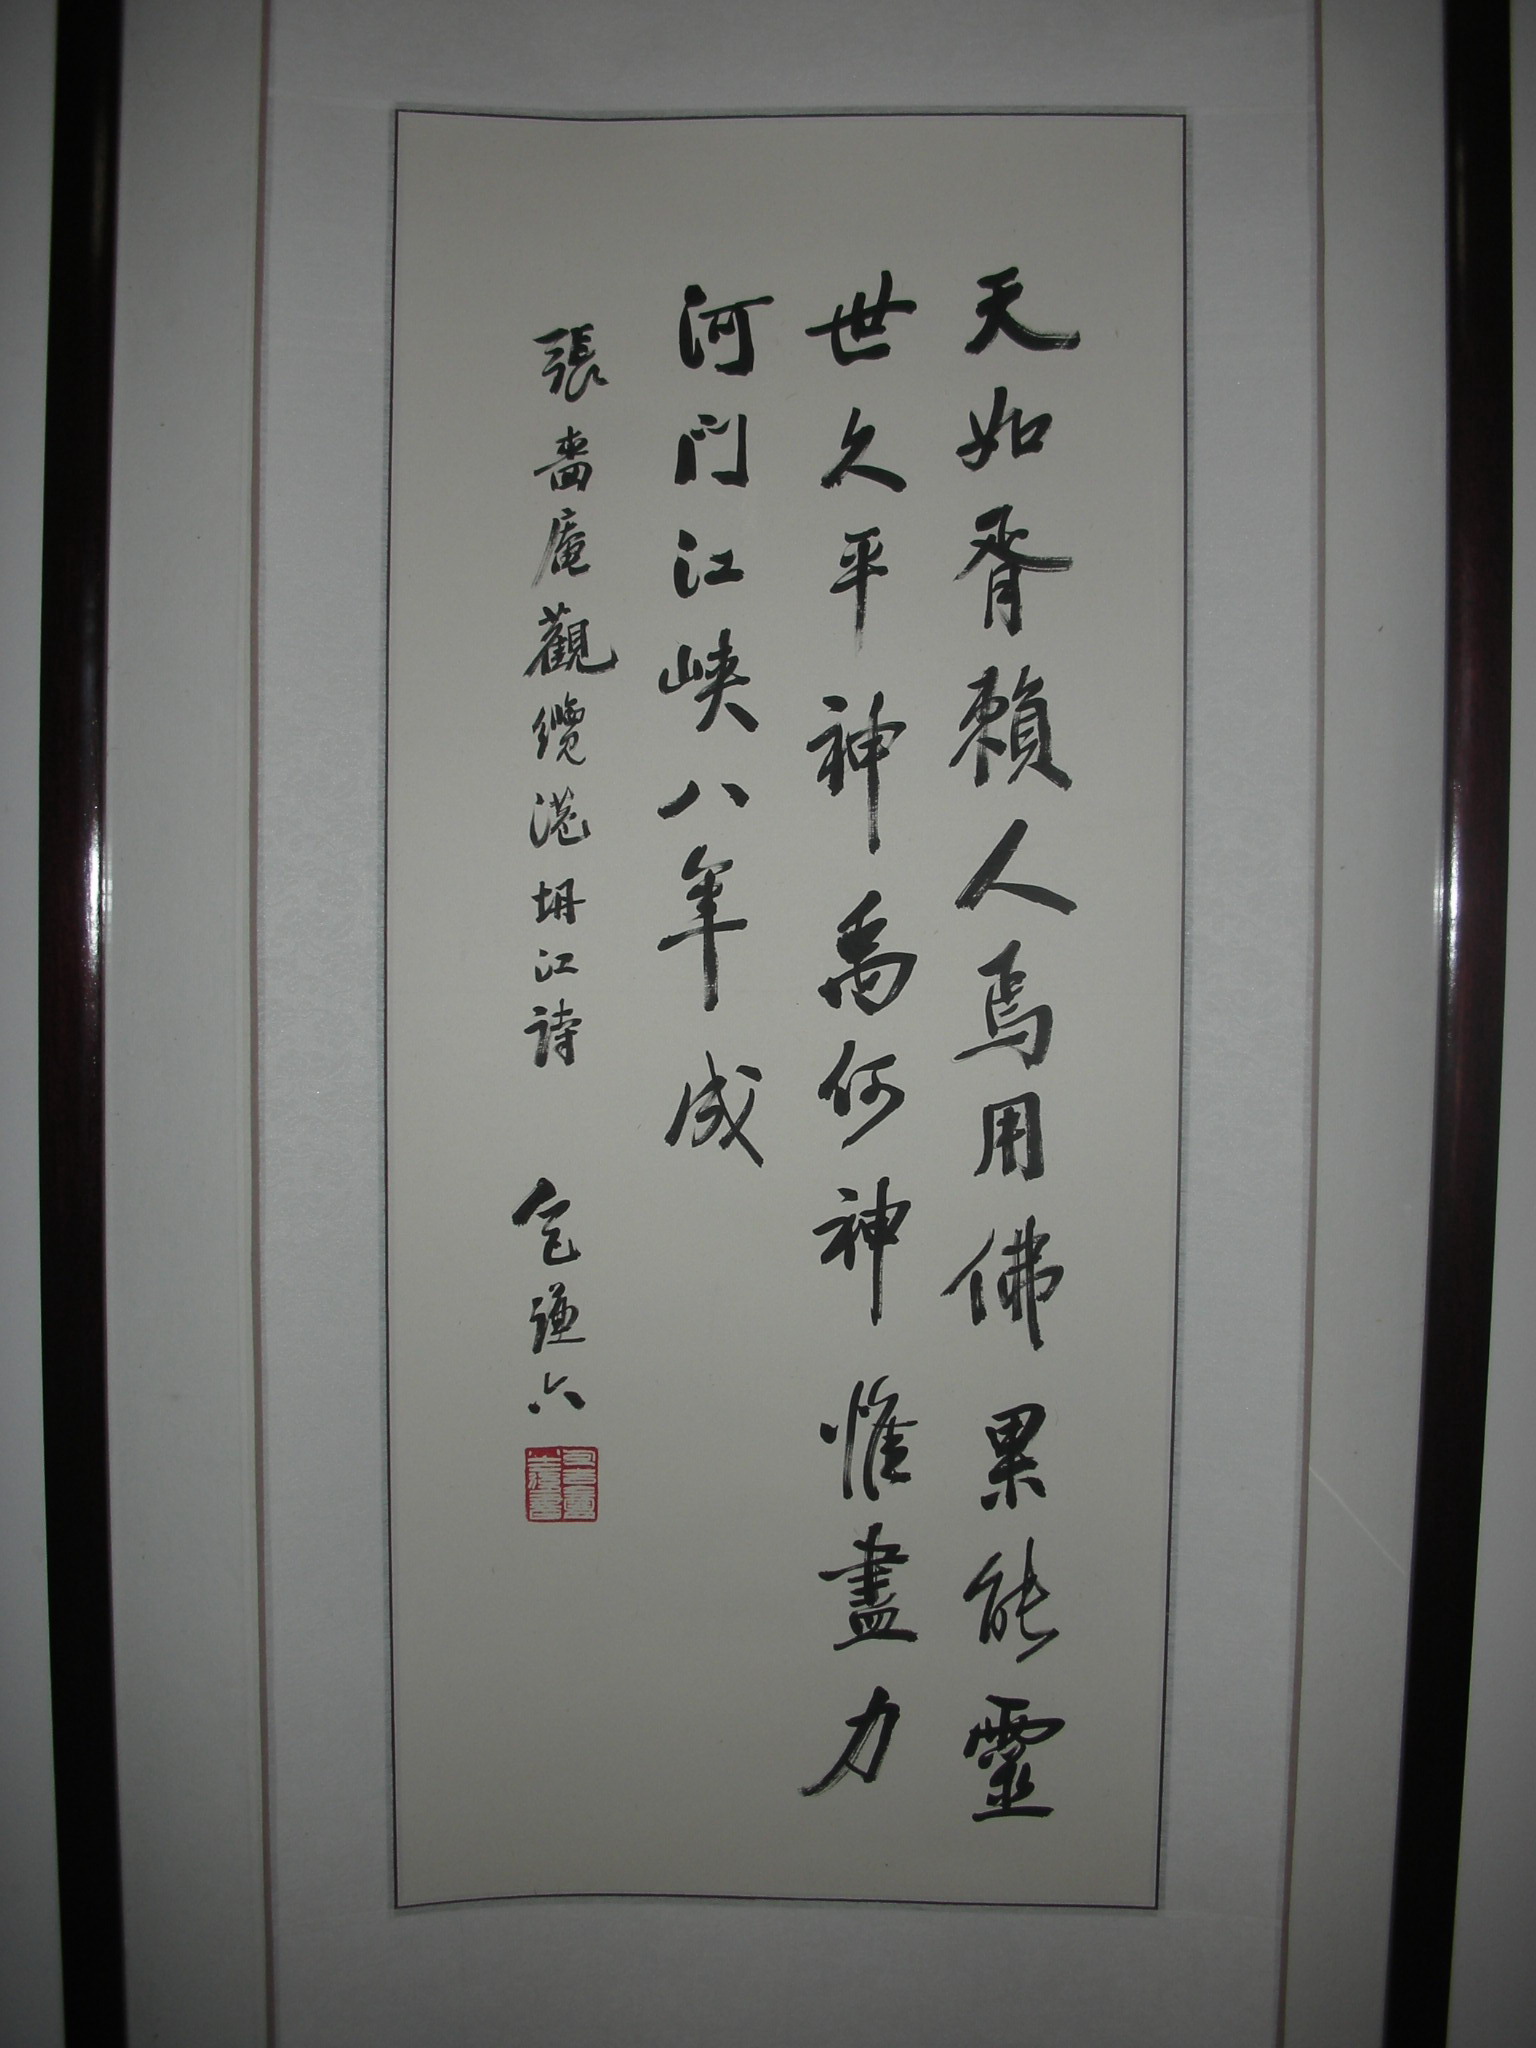 天如胥賴人焉用佛果能靈
世久平神禹何神惟盡力
河門江峽八年成
張嗇庵觀纜港坍江詩 包謙六